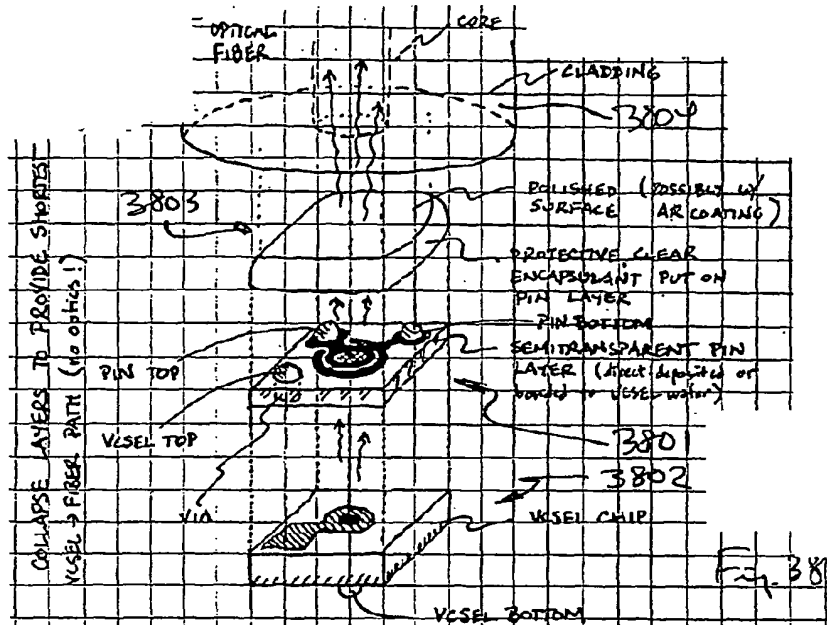 OPTICAL
FIBER
CORE
CLADDING
3804
3803
POLISHED (POSSIBLY W/
SURFACE AR COATING)
PROTECTIVE CLEAR
ENCAPSULANT PUT ON
PIN LAYER
PIN BOTTOM
SEMITRANSPARENT PIN
LAYER (direct deposited or
bonded to VCSEL wafer)
PIN TOP
VCSEL TOP
VIA
3801
3802
VCSEL CHIP
VCSEL BOTTOM
COLLAPSE LAYERS TO PROVIDE SHORTEST
VCSEL → FIBER PATH (no optics!)
Fig. 38